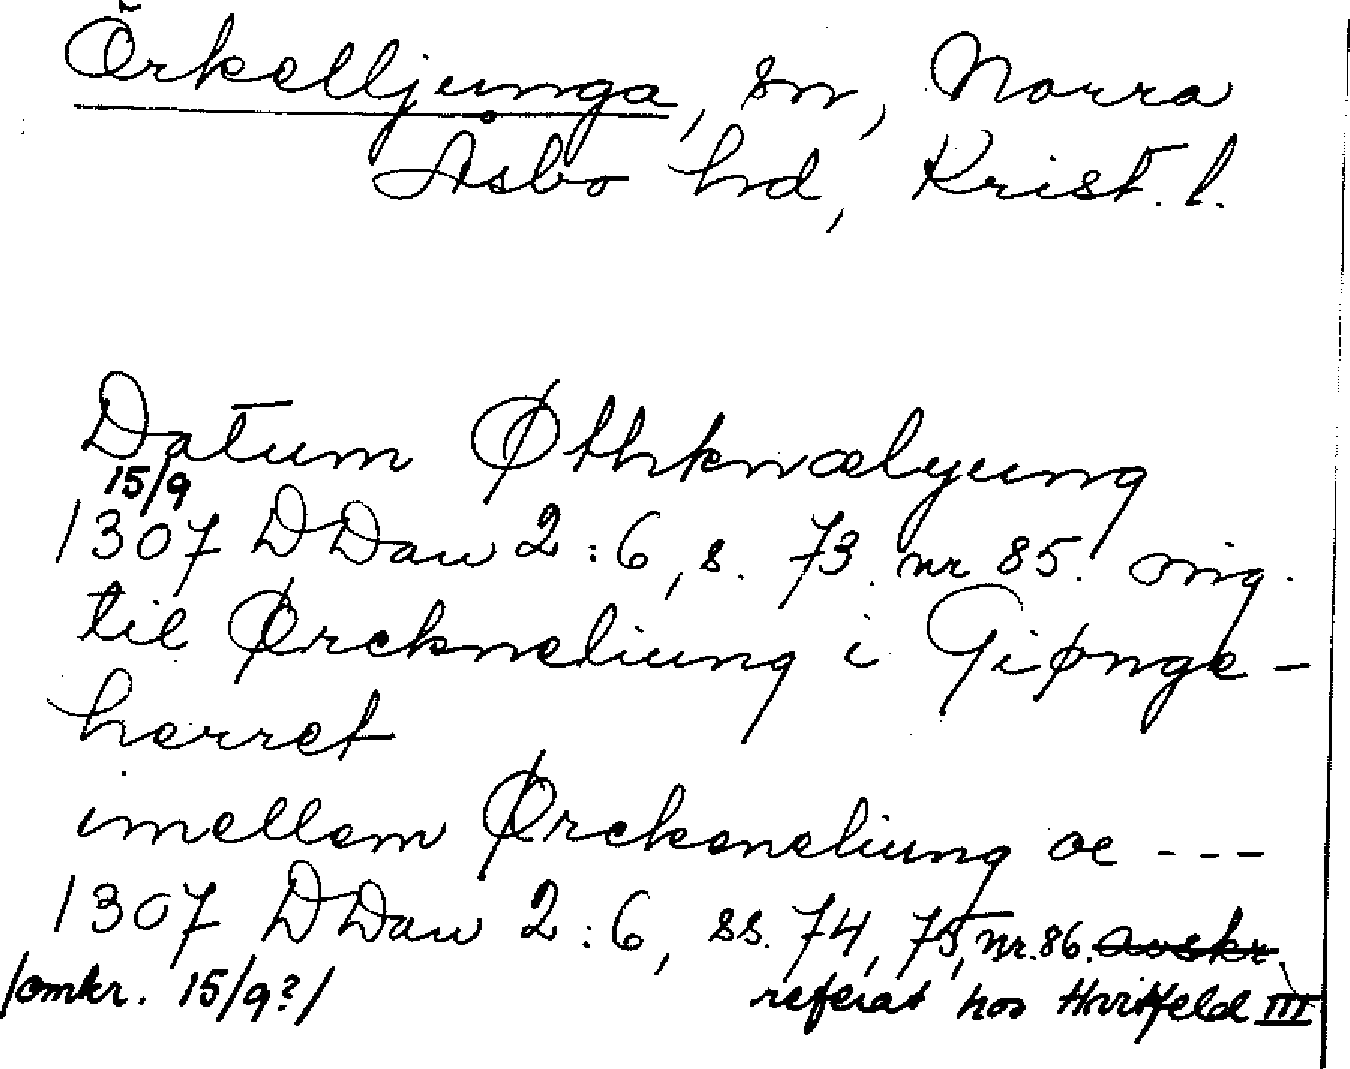 Örkelljunga, sn, Norra
Åsbo hd, Krist. l.
Datum Øthrknælyung
15/9
1307 DDan 2:6, s. 73. nr 85. orig.
til Ørckneliung i Giønge-
herret
imellem Ørckeneliung oc ---
1307 DDan 2:6, ss. 74, 75, nr. 86. avskr.
/omkr. 15/9?/ referat hos Hvitfeld III